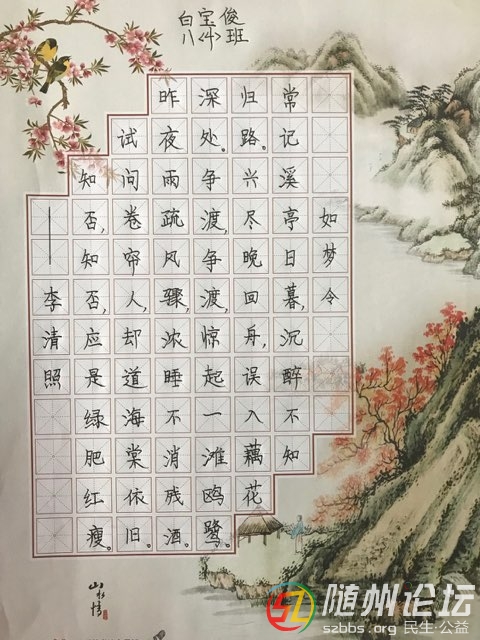 白宝俊
八〈4〉班
如梦令
常记溪亭日暮,沉醉不知
归路。兴尽晚回舟,误入藕花
深处。争渡,争渡,惊起一滩鸥鹭。
昨夜雨疏风骤,浓睡不消残酒。
试问卷帘人,却道海棠依旧。
知否,知否,应是绿肥红瘦。
——李清照
山水情
随州论坛
szbbs.org 民生·公益